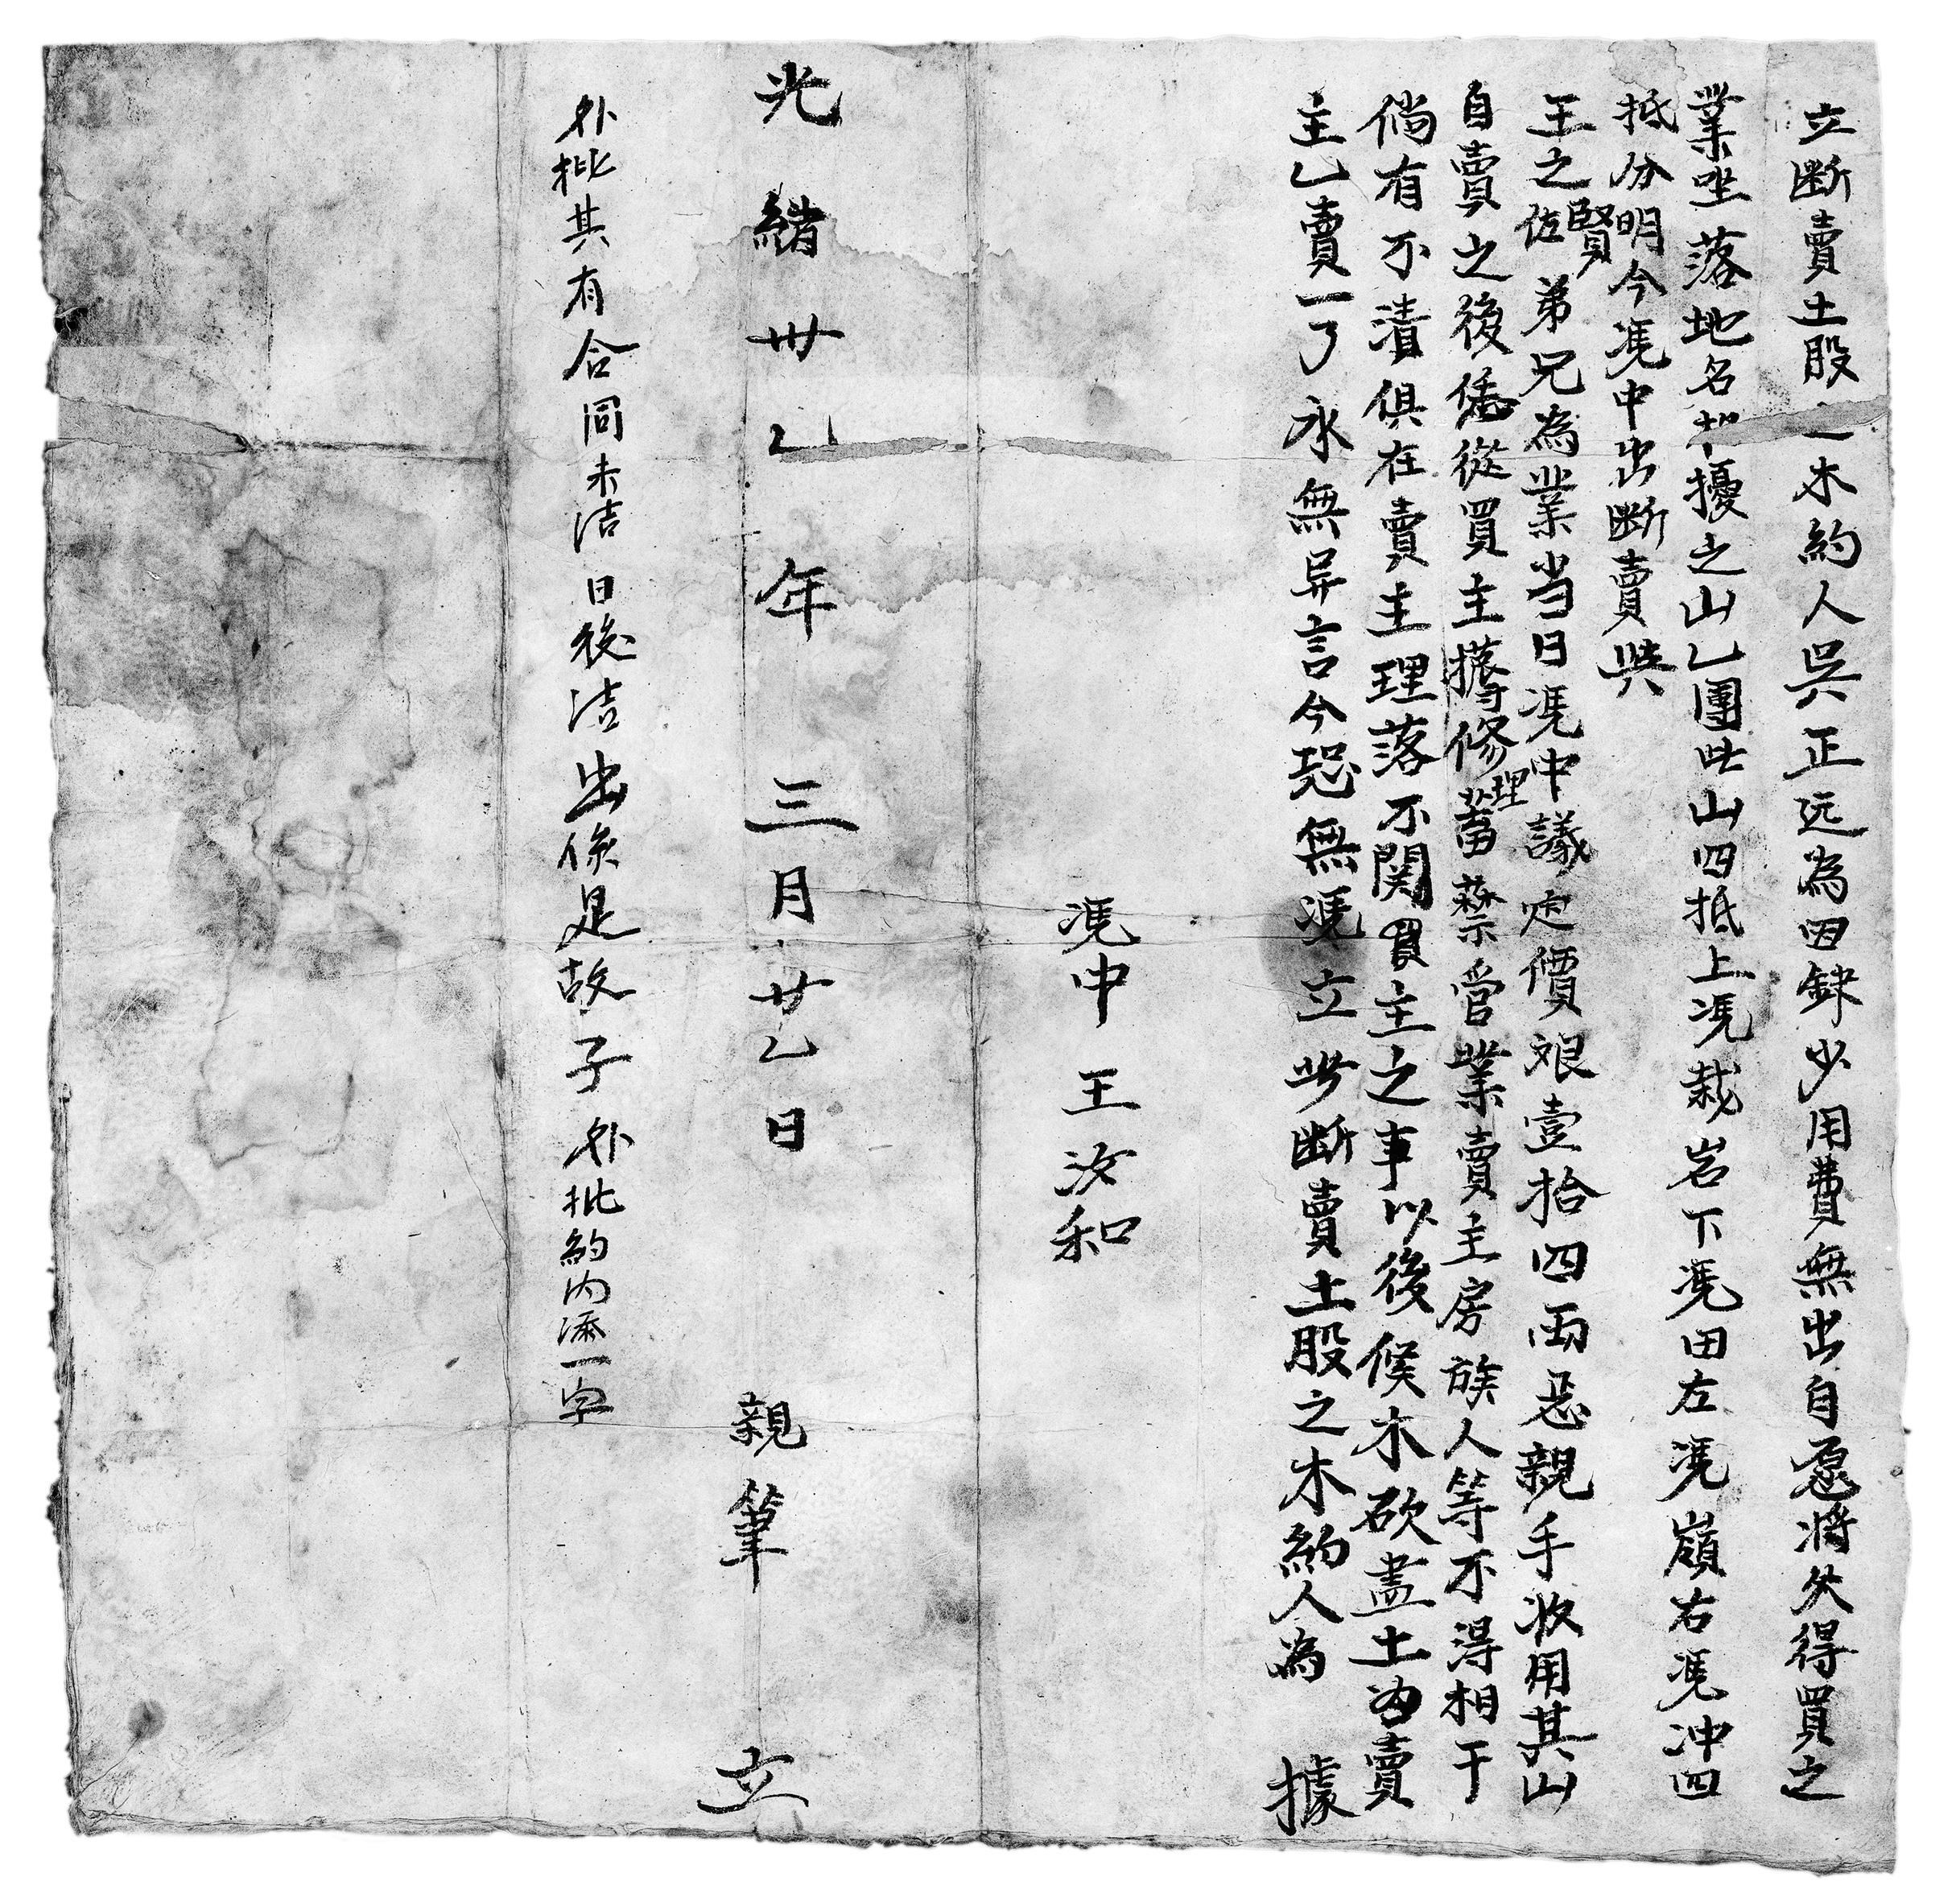 立断賣土股之木約人吳正远為因錁少用費無出自愿将父得買之
業坐落地名擾之山乙團此山四抵上凴栽岩下凴田左凴嶺右凴冲四
抵分明今凴中出断賣與
王之佐賢弟兄為業当日凴中議定價艰壹拾四両忍親手收用其山
自賣之後恁從買主蓄修理蓄禁管業賣主房族人等不得相干
倘有不清俱在賣主理落不関買主之事以後候木砍盡土为賣
主乙賣一了永無异言今恐無凴立此断賣土股之木約人為據
凴中王汝和
光緒卅乙年三月廿乙日親筆立
外批其有合同未洁日後洁出係是故子外批約内添一字